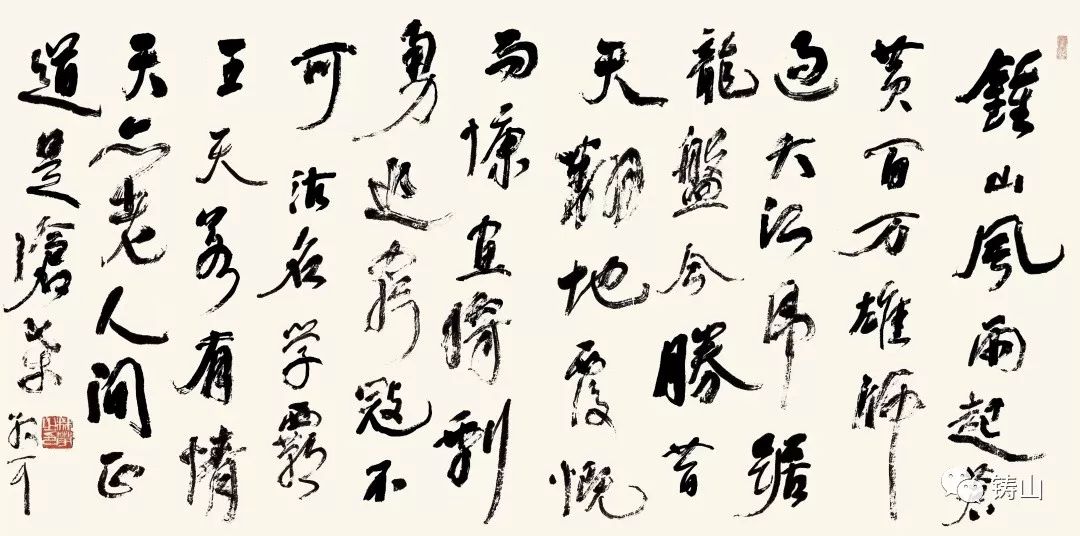 鍾山風雨起蒼
黄百万雄师
過大江虎踞
龍盤今勝昔
天翻地覆慨
而慷宜将剩
勇追窮寇不
可沽名学霸
王天若有情
天亦老人间正
道是滄桑
铸山